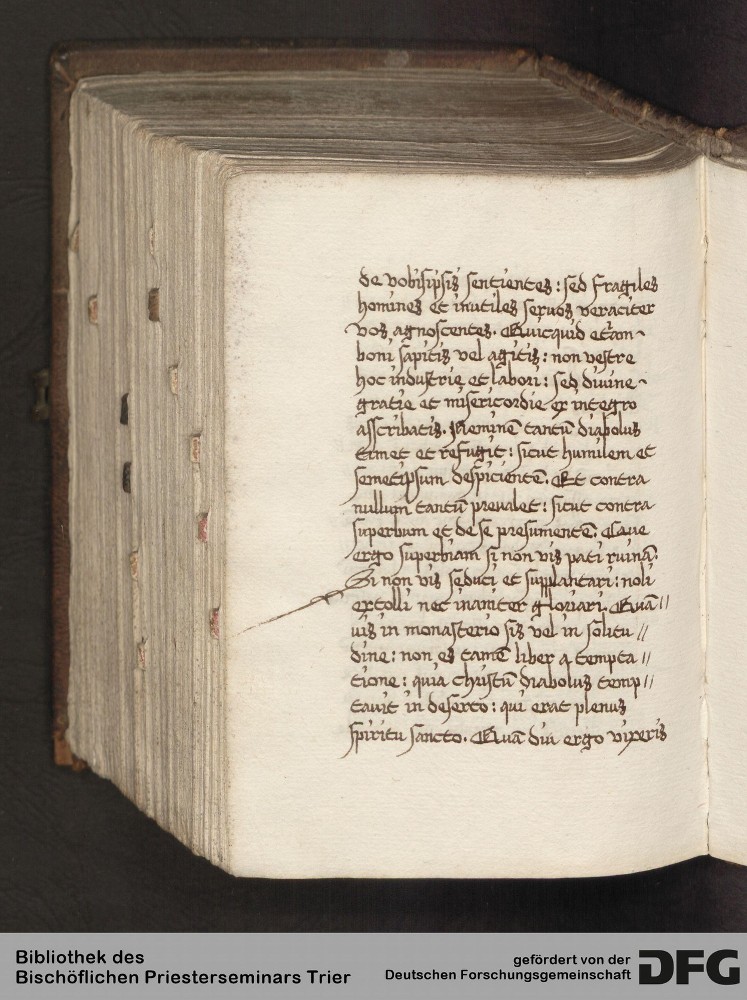 de vobisipsis sentientes: sed fragiles
homines et inutiles servos veraciter
vos agnoscentes. Quicquid etiam
boni sapitis vel agitis: non vestre
hoc industrie et labori: sed divine
gratie et misericordie ex integro
asscribatis. Neminē tantū diabolus
timet et refugit: sicut humilem et
semetipsum despicientē. Et contra
nullum tantū prevalet: sicut contra
superbum et de se presumentē. Cave
ergo superbiam si non vis pati ruinā.
Si non vis seduci et supplantari: noli
extolli nec inaniter gloriari. Quā//
vis in monasterio sis vel in solitu//
dine: non es tamē liber a tempta//
tione: quia christū diabolus temp//
tavit in deserto: qui erat plenus
spiritu sancto. Quā diu ergo vixeris
Bibliothek des
Bischöflichen Priesterseminars Trier
gefördert von der
Deutschen Forschungsgemeinschaft
DFG